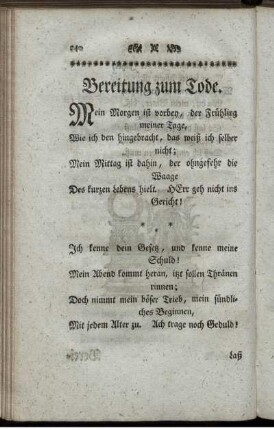 240
Bereitung zum Tode.
Mein Morgen ist vorbey, der Frühling
meiner Tage,
Wie ich den hingebracht, das weiß ich selber
nicht;
Mein Mittag ist dahin, der ohngefehr die
Waage
Des kurzen Lebens hielt. HErr geh nicht ins
Gericht!
* * *
Ich kenne dein Gesetz, und kenne meine
Schuld!
Mein Abend kommt heran, itzt sollen Thränen
rinnen;
Doch nimmt mein böser Trieb, mein sündli-
ches Beginnen,
Mit jedem Alter zu. Ach trage noch Geduld!
Laß